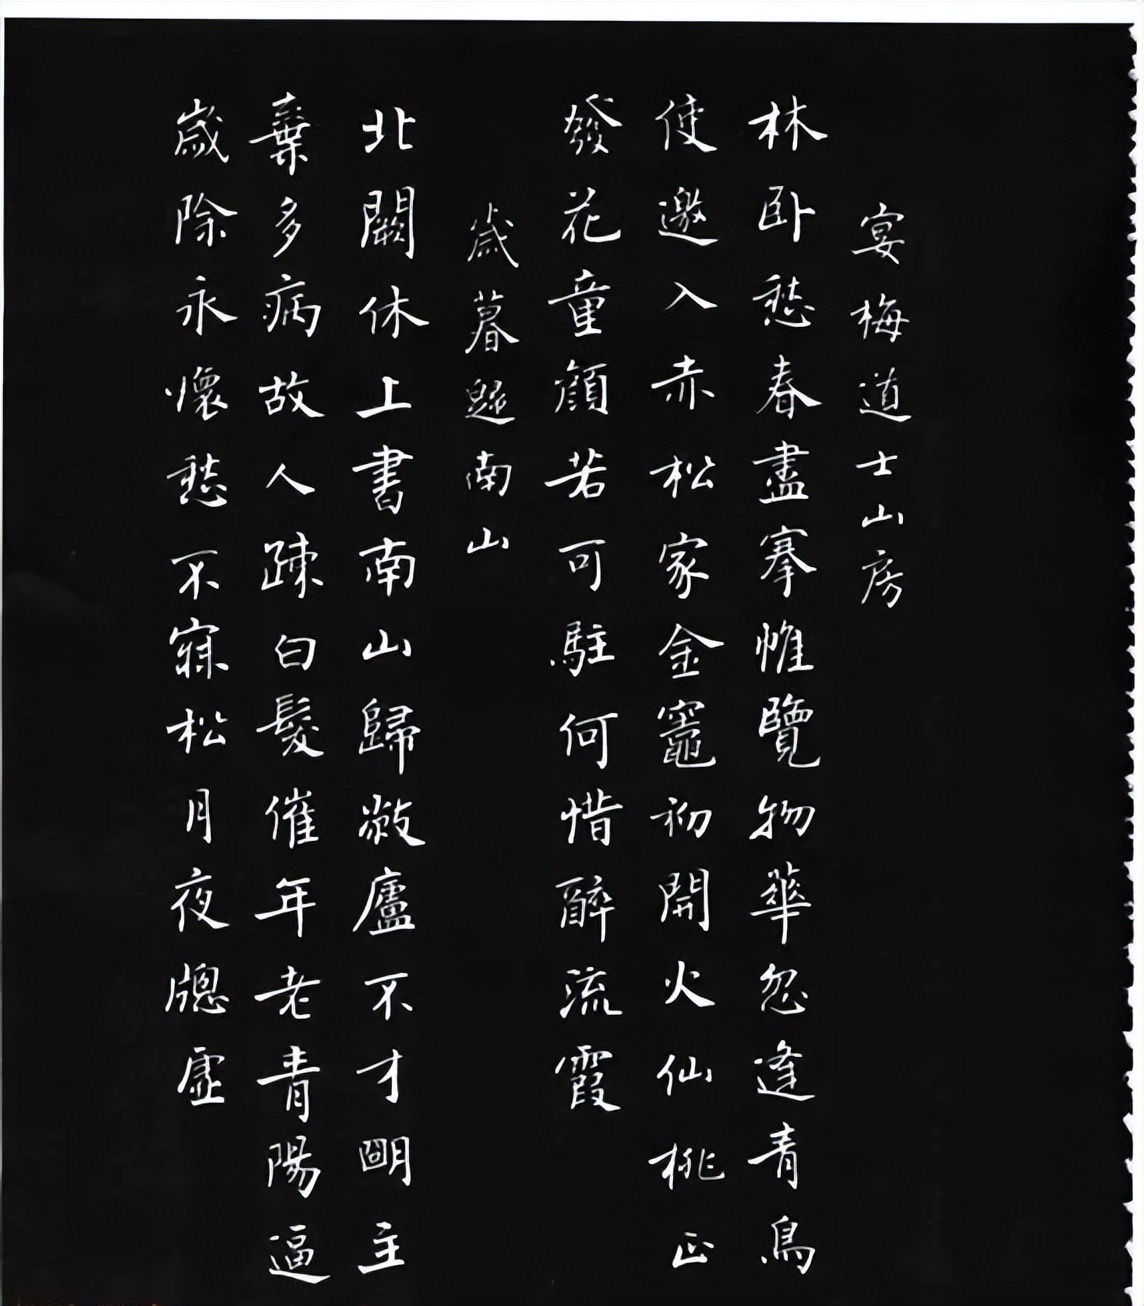 宴梅道士山房
林卧愁春盡搴惟覽物華忽逢青鳥
使邀入赤松家金竈初開火仙桃正
發花童顔若可駐何惜醉流霞
歲暮歸南山
北闕休上書南山歸敝廬不才明主
棄多病故人踈白髮催年老青陽逼
歲除永懷愁不寐松月夜牎虛